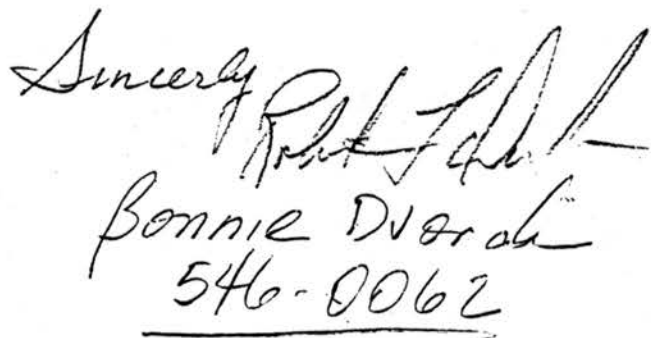 Sincerly Robert
Bonnie Dvorak
546-0062